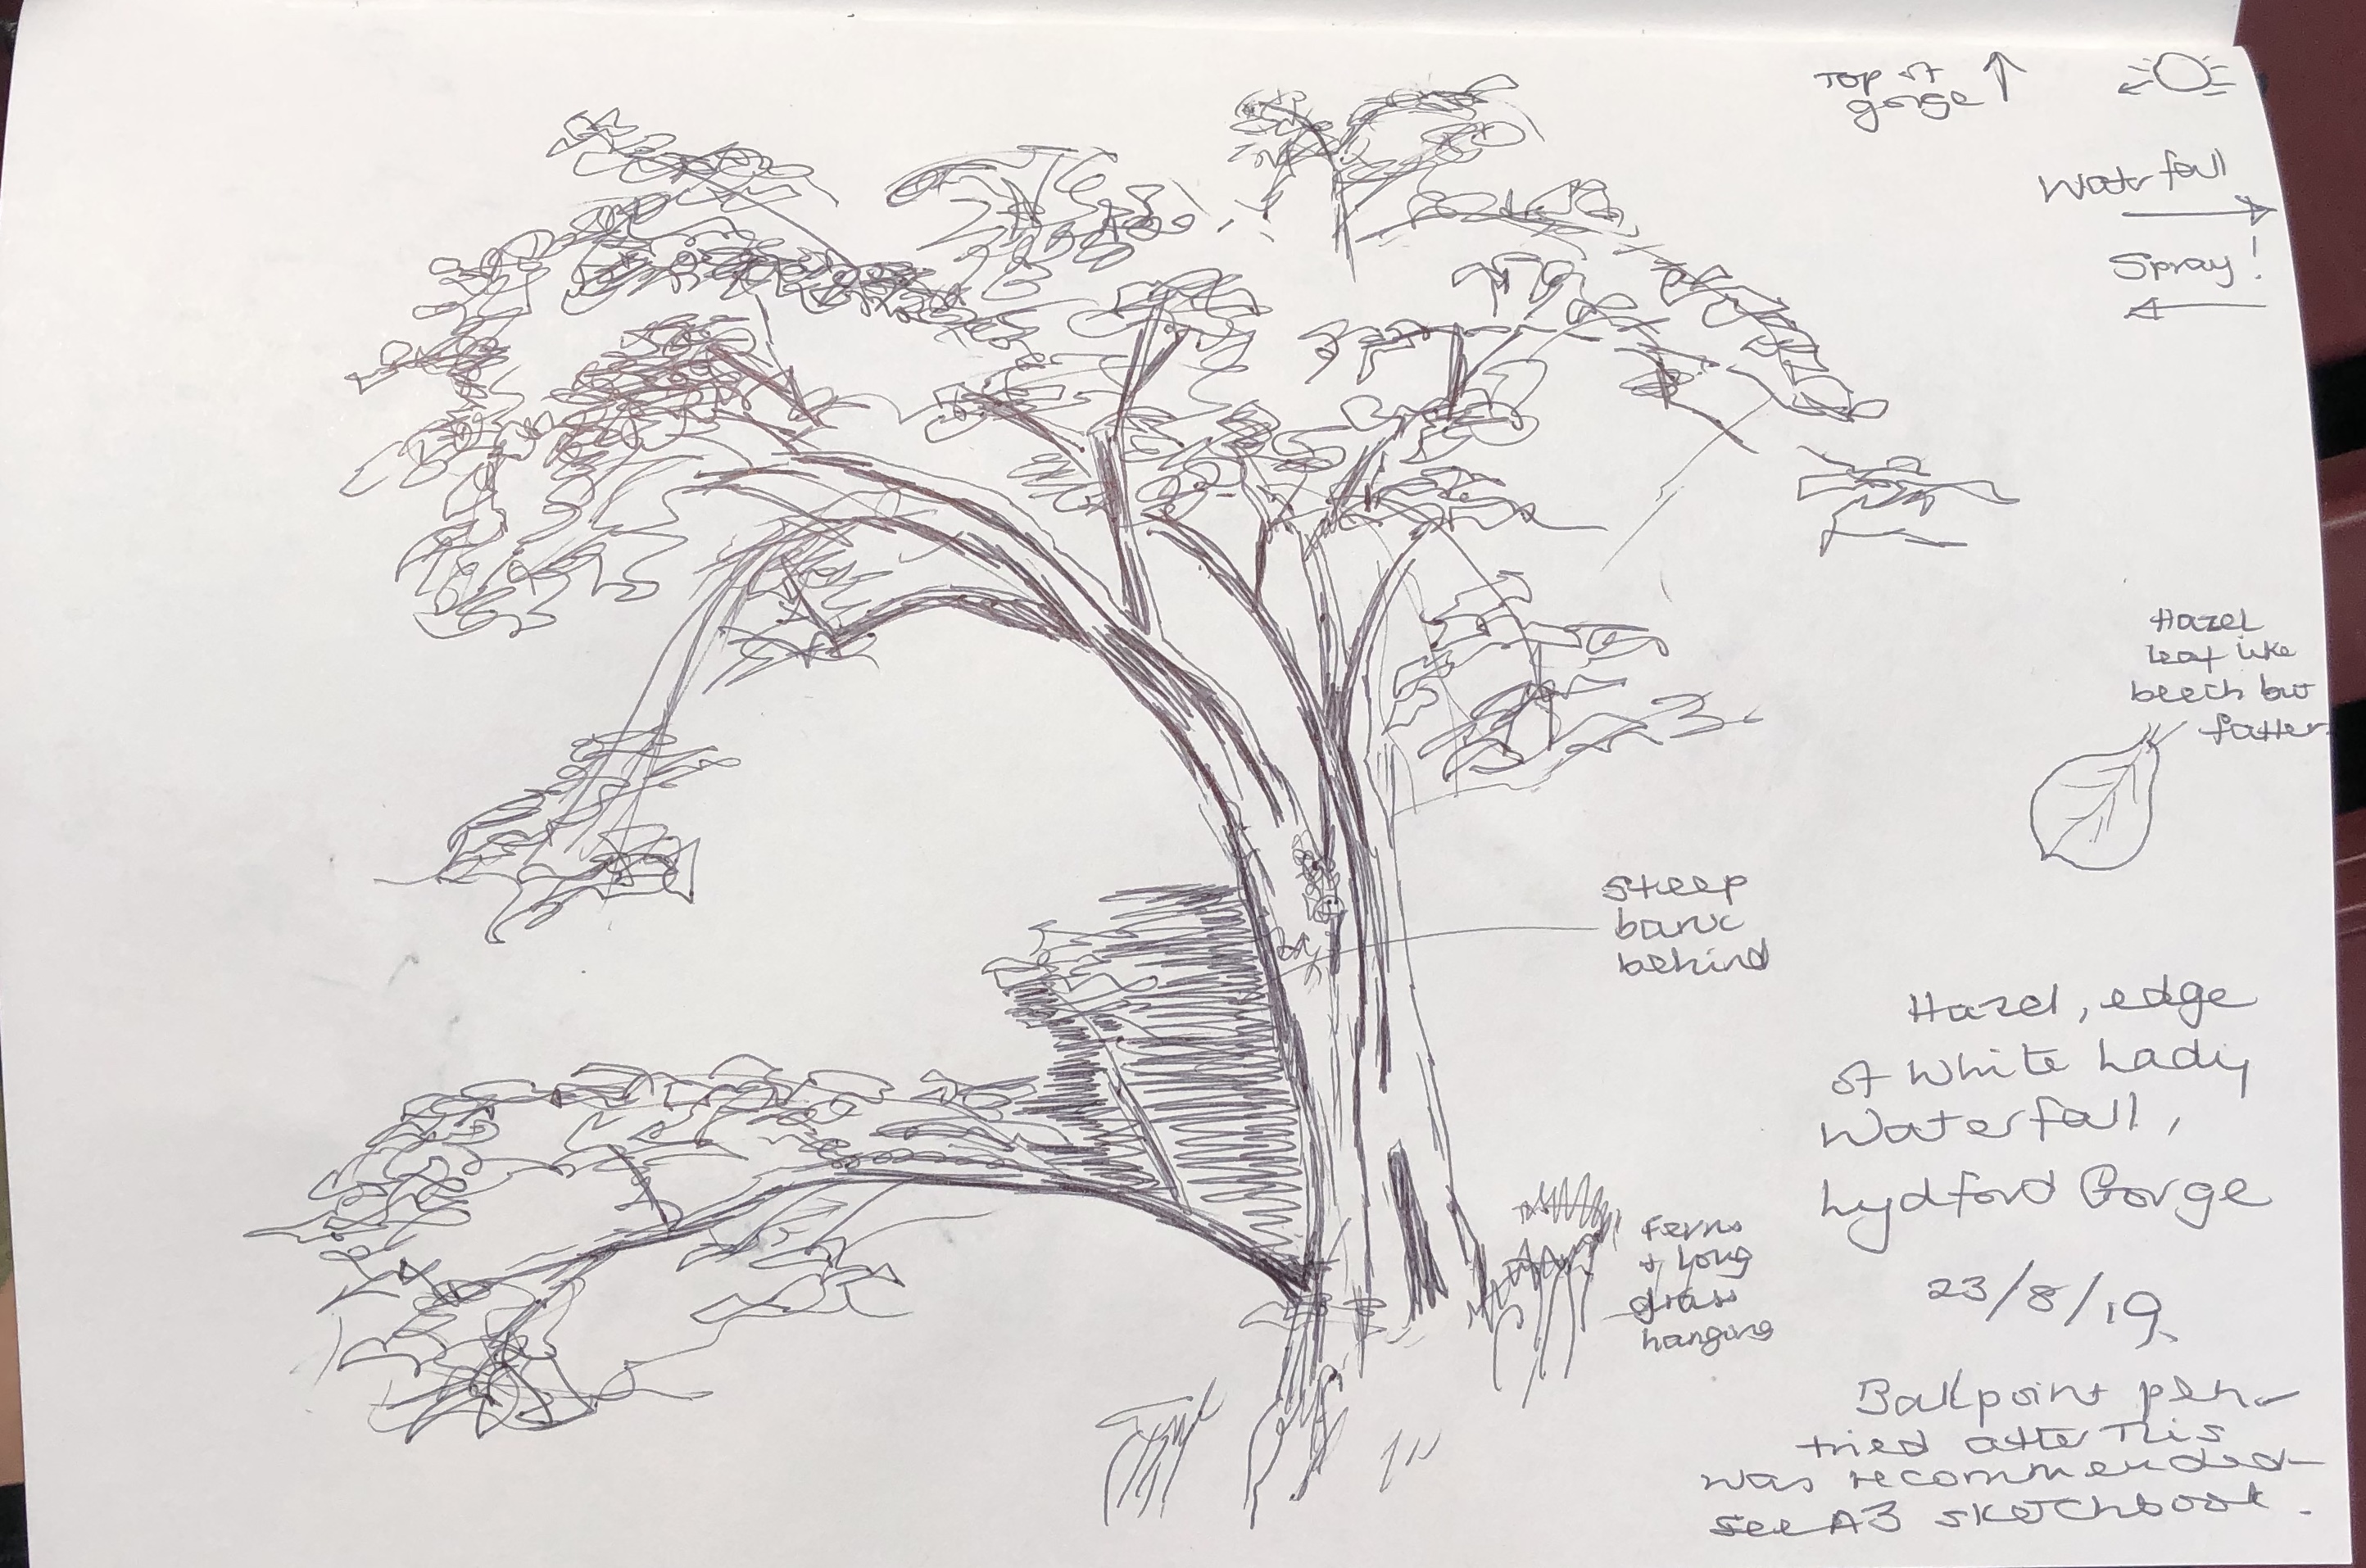 Top of
gorge
Waterfall
Spray!
Hazel
leaf like
beech but
fatter
steep
bank
behind
Hazel, edge
of White Lady
Waterfall,
Lydford Gorge
ferns
+ long
grass
hanging
23/8/19
Ballpoint pen -
tried after this
was recommended -
see A3 sketchbook.